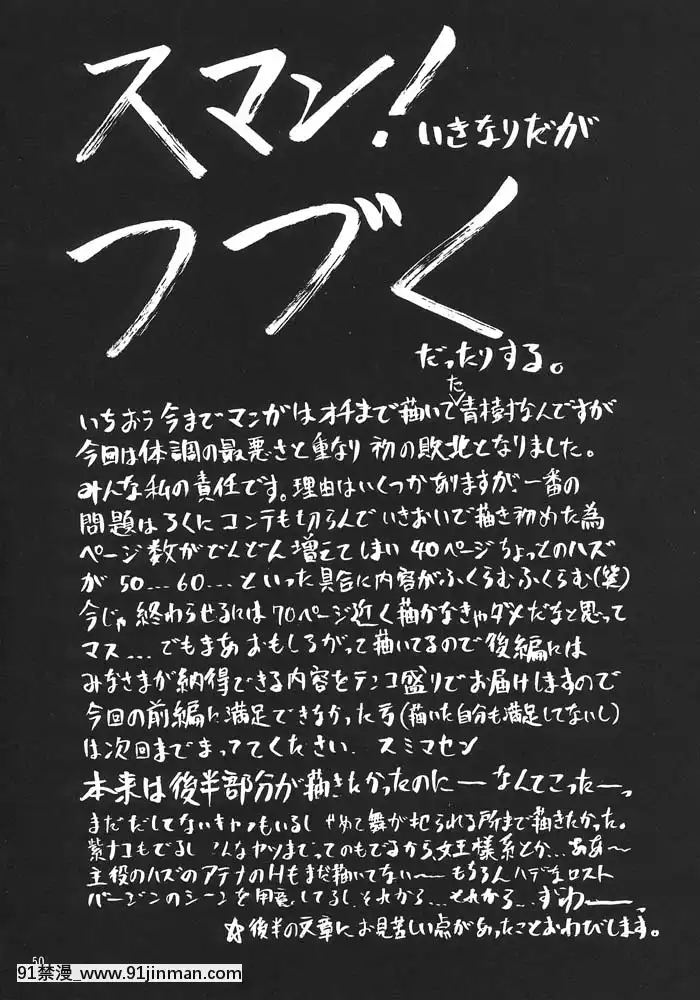 スマン!いきなりだが
つづく
だったりする。
いちおう今までマンガはオチまで描いてた青樹村なんですが
今回は体調の最悪さと重なり初の敗北となりました。
みんな私の責任です。理由はいくつかありますが一番の
問題はろくにコンテも切らんでいきおいで描き初めた為
ページ数がどんどん増えてしまい40ページちょっとのハズ
が50…60…といった具合に内容がふくらむふくらむ(笑)
今じゃ終わらせるには70ページ近く描かなきゃダメだなと思って
マス…でもまあおもしろがって描いてるので後編には
みなさまが納得できる内容をテンコ盛りでお届けしますので
今回の前編に満足できなかった方(描いた自分も満足してないし)
は次回までまっててください.スミマセン
本来は後半部分が描きたかったのにーなんてこったーっ
まだだしてないキャラもいるし せめて舞が犯られる所まで描きたかった。
紫ナコもでるし こんなヤツまでってのもでるから女王様系とか…ああ〜
主役のハズのアテナのHもまだ描いてない〜もちろんハデなロスト
バージンのシーンを用意してるしそれから…それから…ずわーーっ
☆後半の文章にお見苦しい点があったことおわびします。
50
91禁漫_www.91jinman.com